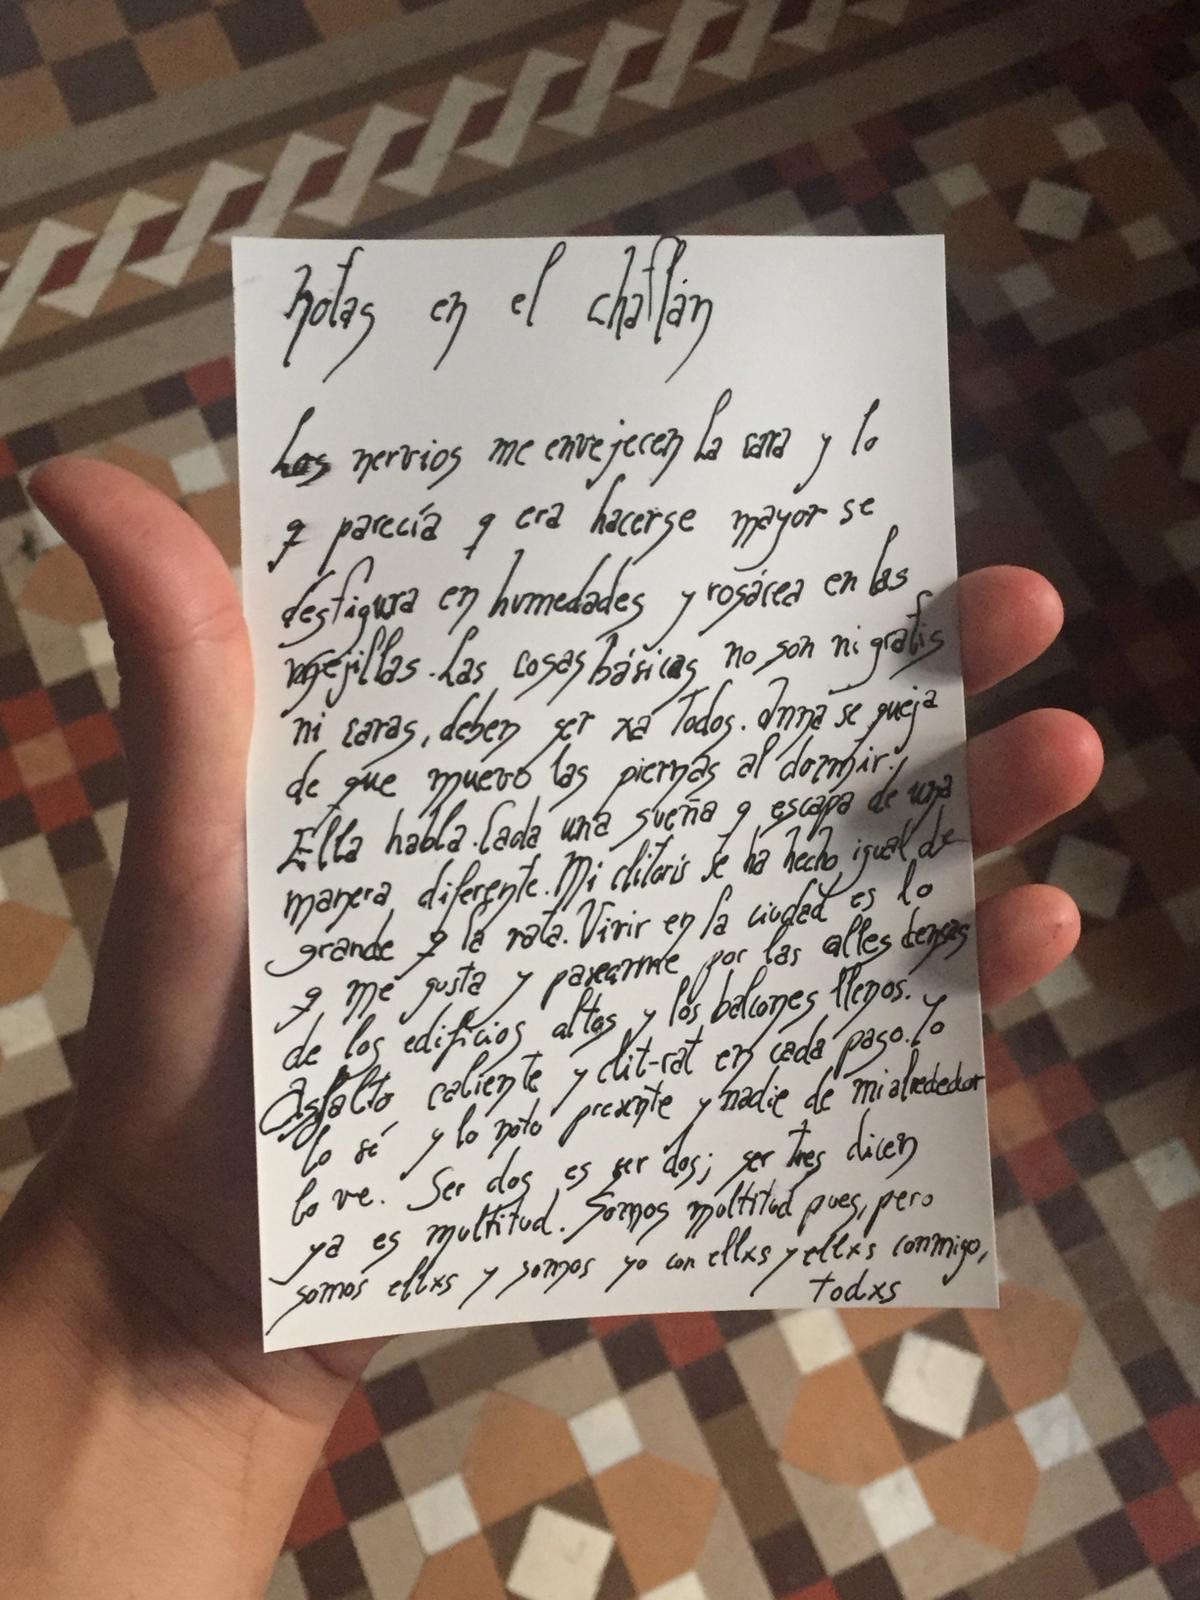 notas en el chaflán
Los nervios me envejecen la cara y lo
q parecía q era hacerse mayor se
desfigura en humedades y rosácea en las
mejillas. Las cosas básicas no son ni gratis
ni caras, deben ser xa todos. Anna se queja
de que muevo las piernas al dormir.
Ella habla. Cada una sueña q escapa de una
manera diferente. Mi clitoris se ha hecho igual de
grande q la rata. Vivir en la ciudad es lo
q me gusta y pasearme por las calles densas
de los edificios altos y los balcones llenos.
Asfalto caliente y clit-rat en cada paso. Yo
lo sé y lo noto presente y nadie de mi alrededor
lo ve. Ser dos es ser dos; ser tres dicen
ya es multitud. Somos multitud pues, pero
somos ellxs y somos yo con ellxs y ellxs conmigo,
todxs